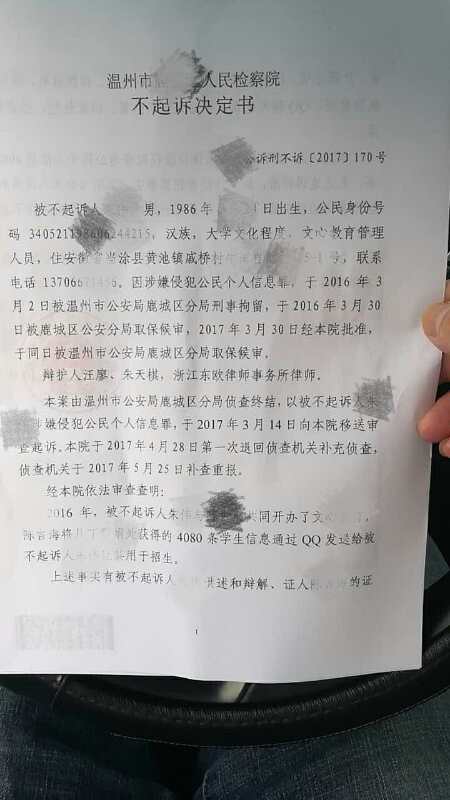 温州市 人民检察院
不起诉决定书
诉刑不诉〔2017〕170号
被不起诉人 男，1986年 日出生，公民身份号
码 ，汉族，大学文化程度，文心教育管理
人员，住安 当涂县黄池镇戚桥村 号，联系
电话 ，因涉嫌侵犯公民个人信息罪，于2016年3
月2日被温州市公安局鹿城区分局刑事拘留，于2016年3月30
日被鹿城区公安分局取保候审，2017年3月30日经本院批准，
于同日被温州市公安局鹿城区分局取保候审。
辩护人汪廖、朱天棋，浙江东欧律师事务所律师。
本案由温州市公安局鹿城区分局侦查终结，以被不起诉人朱
涉嫌侵犯公民个人信息罪，于2017年3月14日向本院移送审
查起诉。本院于2017年4月28日第一次退回侦查机关补充侦查，
侦查机关于2017年5月25日补查重报。
经本院依法审查查明：
2016年，被不起诉人朱 共同开办了文心
陈 海将 处获得的4080条学生信息通过QQ发送给被
不起诉人 用于招生。
上述事实有被不起诉人 供述和辩解、证人陈 的证
1